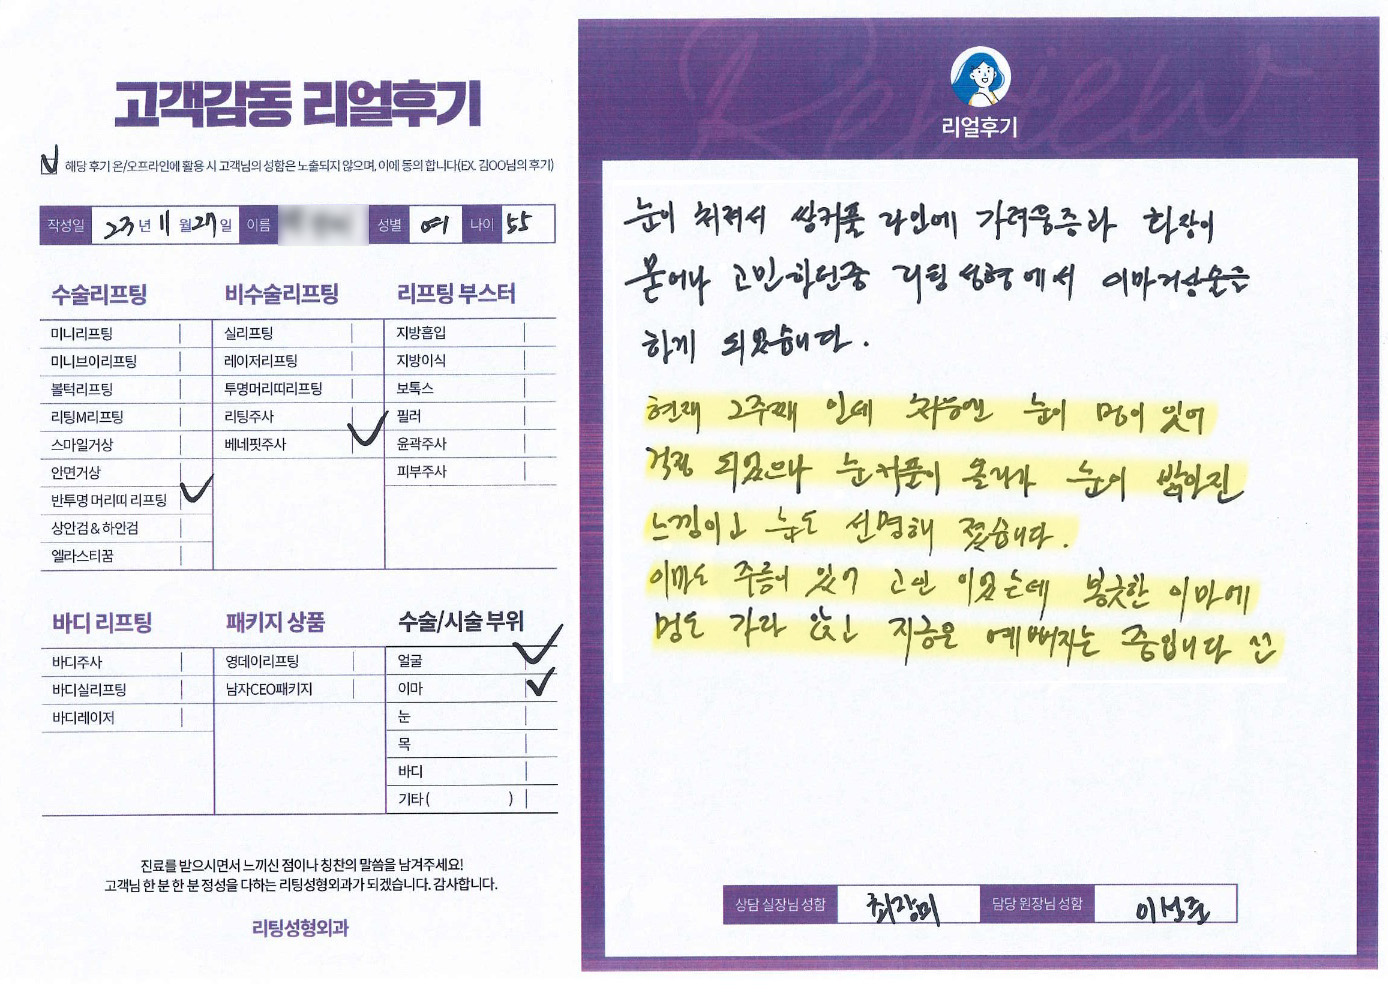 고객감동 리얼후기
해당 후기 온/오프라인에 활용 시 고객님의 성함은 노출되지 않으며, 이에 동의 합니다(EX. 김OO님의 후기)
작성일 23년 11월 27일 이름 성별 여 나이 55
수술리프팅
미니리프팅
미니브이리프팅
볼턱리프팅
리팅M리프팅
스마일거상
안면거상
반투명 머리띠 리프팅
상안검 & 하안검
엘라스티꿈
비수술리프팅
실리프팅
레이저리프팅
투명머리띠리프팅
리팅주사
베네핏주사
리프팅 부스터
지방흡입
지방이식
보톡스
필러
윤곽주사
피부주사
바디 리프팅
바디주사
바디실리프팅
바디레이저
패키지 상품
영데이리프팅
남자CEO패키지
수술/시술 부위
얼굴
이마
눈
목
바디
기타 ( )
진료를 받으시면서 느끼신 점이나 칭찬의 말씀을 남겨주세요!
고객님 한 분 한 분 정성을 다하는 리팅성형외과가 되겠습니다. 감사합니다.
리팅성형외과
Review
리얼후기
눈이 처져서 쌍커풀 라인에 가려움증과 화장이
묻어나 고민하던중 리팅성형에서 이마거상술을
하게 되었습니다.
현재 2주째 인데 처음엔 눈이 멍이 있어
걱정 되었으나 눈커풀이 올라가 눈이 밝아진
느낌이고 눈도 선명해 졌습니다.
이마도 주름이 있어 고민 이었는데 봉긋한 이마에
멍도 가라 앉고 지금은 예뻐지는 중입니다
상담 실장님 성함 최장미 담당 원장님 성함